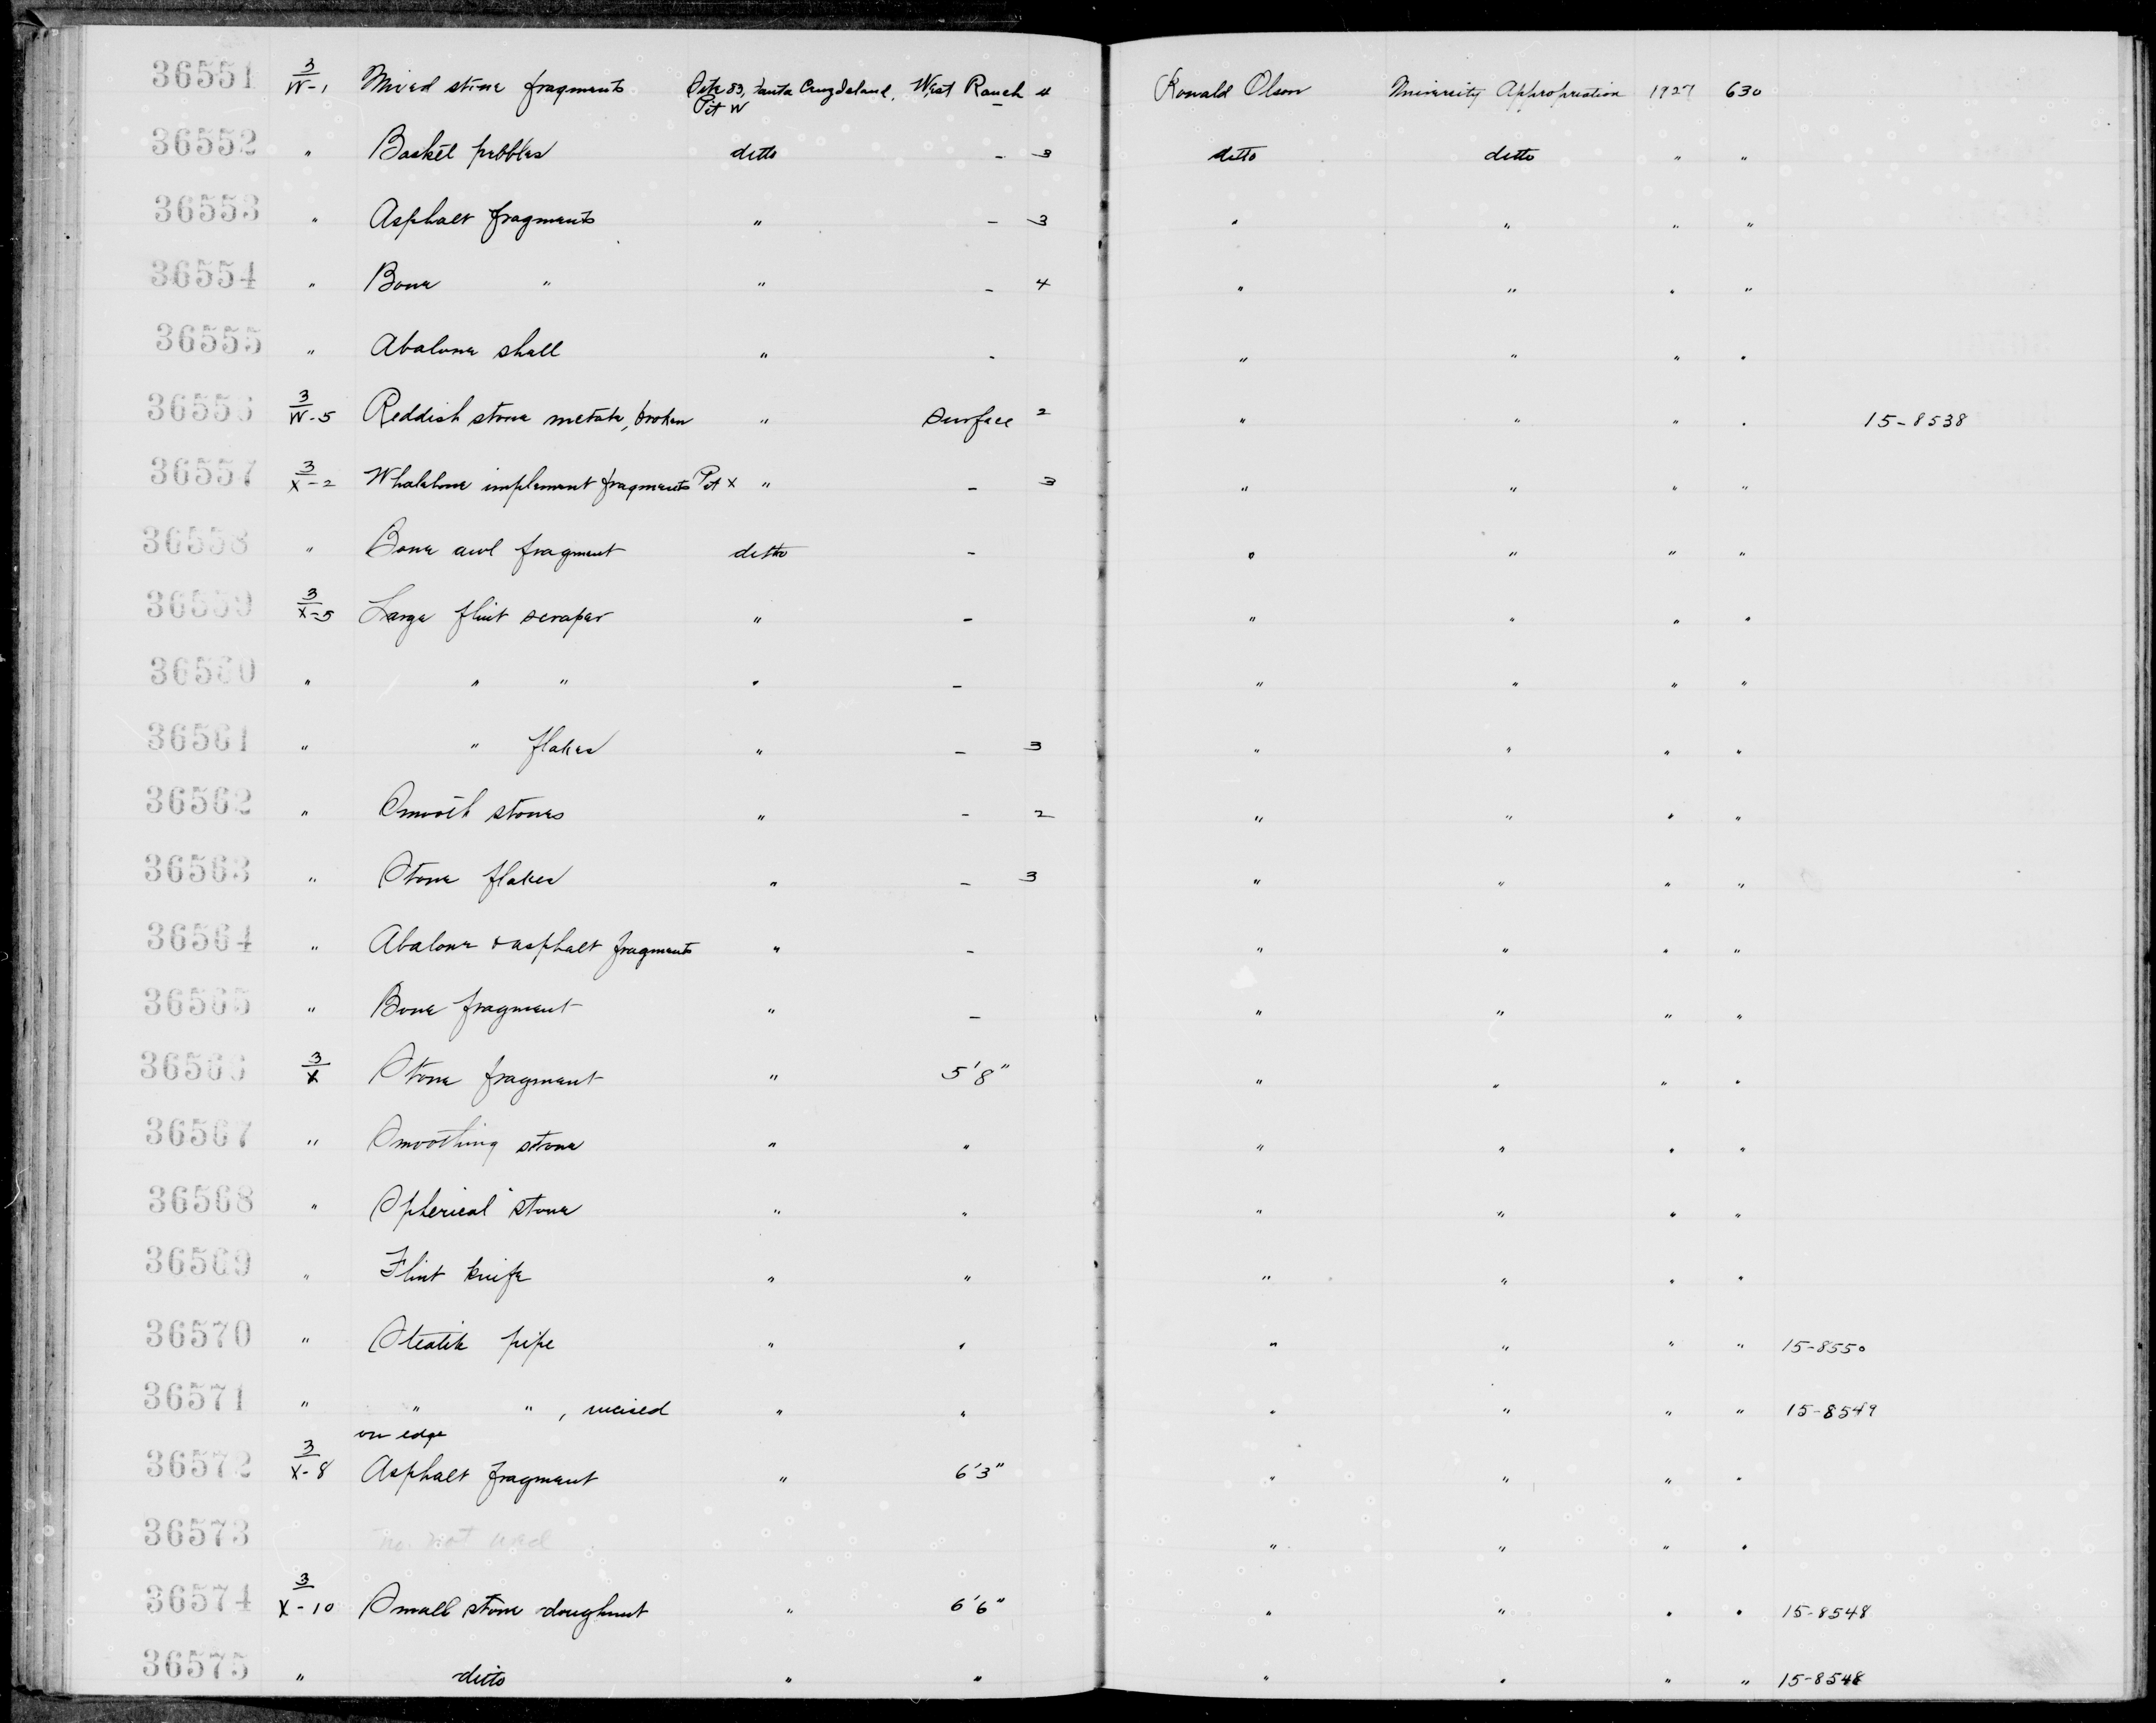 36551 3/W-1 Mixed stone fragments Site 83, Santa Cruz Island, West Ranch 4 Ronald Olson University Appropriation 1927 630
Pit W –
36552 " Basket pebbles ditto – 3 ditto ditto " "
36553 " Asphalt fragments " – 3 " " " "
36554 " Bone " " – 4 " " " "
36555 " Abalone shell " – " " " "
36556 3/W-5 Reddish stone metate, broken " Surface 2 " " " " 15-8538
36557 3/X-2 Whalebone implement fragments Pit X " – 3 " " " "
36558 " Bone awl fragment ditto – " " " "
36559 3/X-5 Large flint scraper " – " " " "
36560 " " " " – " " " "
36561 " " flakes " – 3 " " " "
36562 " Smooth stones " – 2 " " " "
36563 " Stone flakes " – 3 " " " "
36564 " Abalone & asphalt fragments " – " " " "
36565 " Bone fragment " – " " " "
36566 3/X Stone fragment " 5'8" " " " "
36567 " Smoothing stone " " " " " "
36568 " Spherical stone " " " " " "
36569 " Flint knife " " " " " "
36570 " Steatite pipe " " " " " " 15-8550
36571 " " " , incised " " " " " " 15-8549
on edge
36572 3/X-8 Asphalt fragment " 6'3" " " " "
36573 no. not used " " " "
36574 3/X-10 Small stone doughnut " 6'6" " " " " 15-8548
36575 " ditto " " " " " " 15-8548